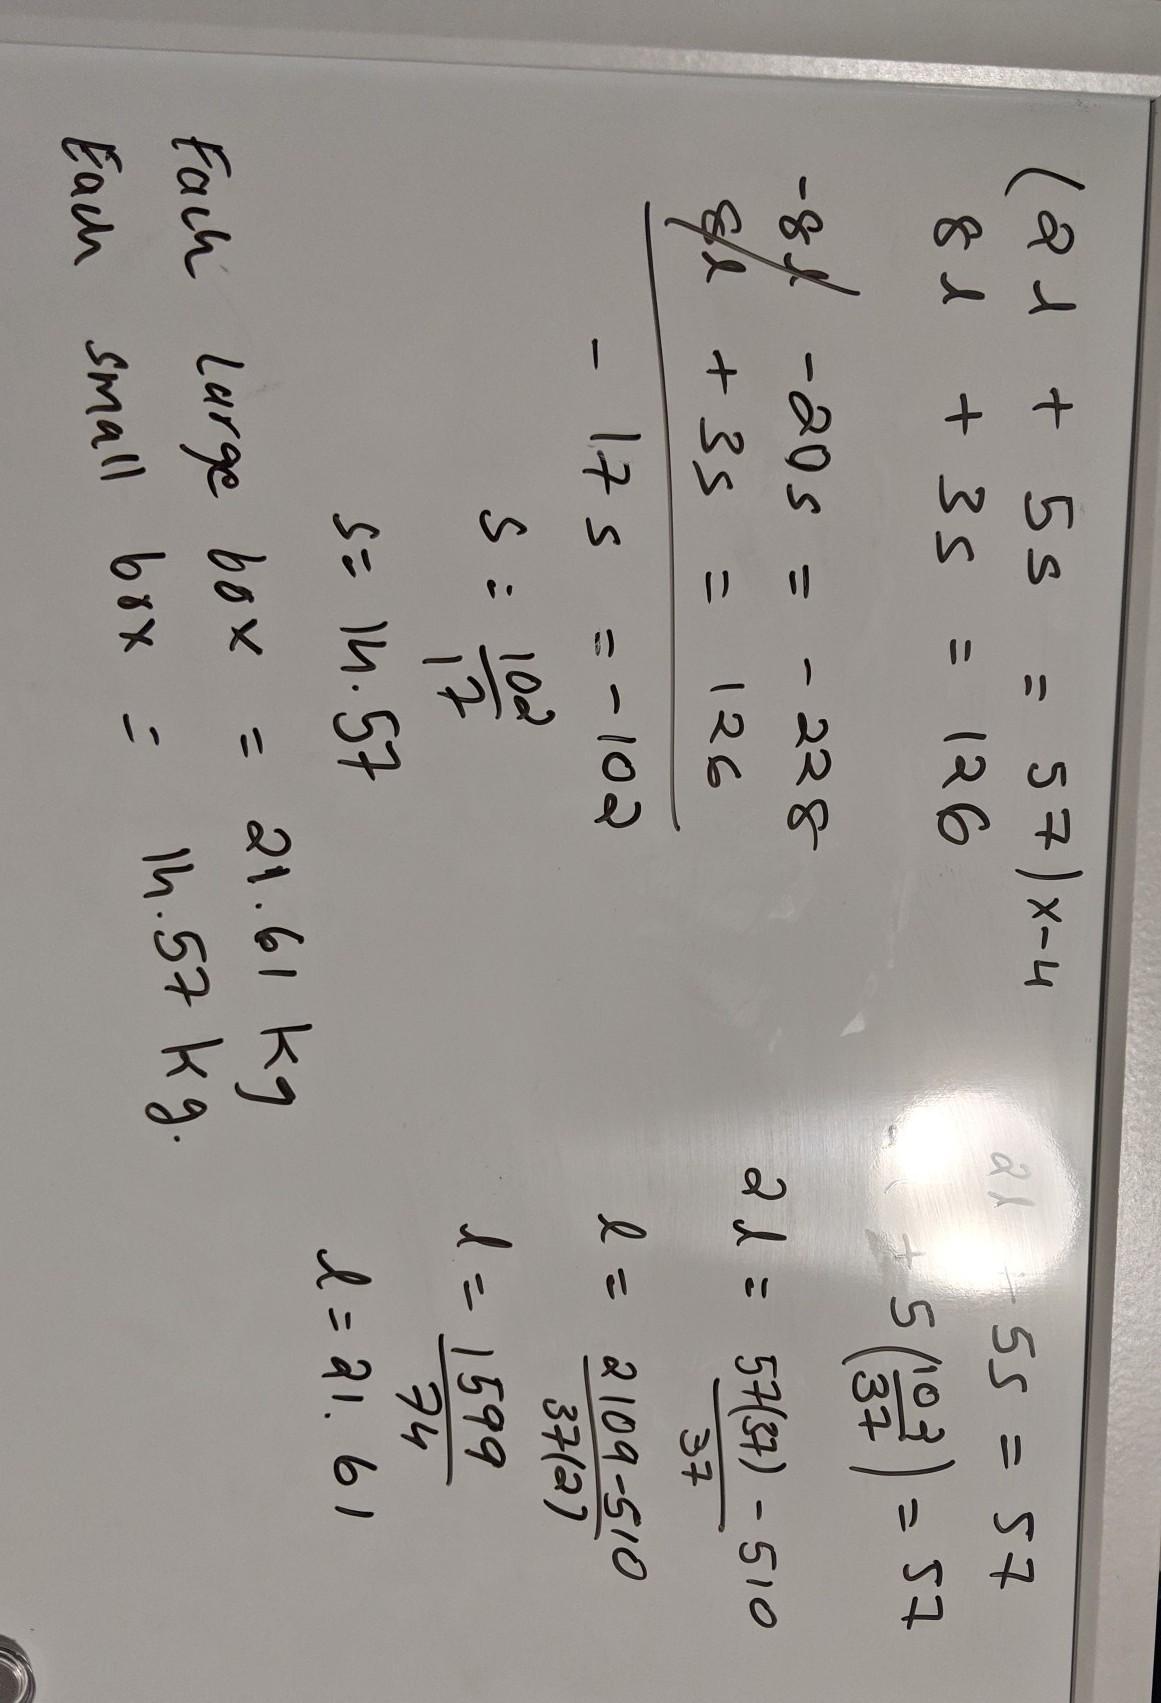 (2l + 5s = 57)x-4
8l + 3s = 126
-8l -20s = -228
8l + 3s = 126
- 17s = -102
s = 102
17
s = 14.57
Each large box = 21.61 kg
Each small box = 14.57 kg.
2l + 5s = 57
+ 5(102
37) = 57
2l = 57(37) - 510
37
l = 2109-510
37(2)
l = 1599
74
l = 21.61